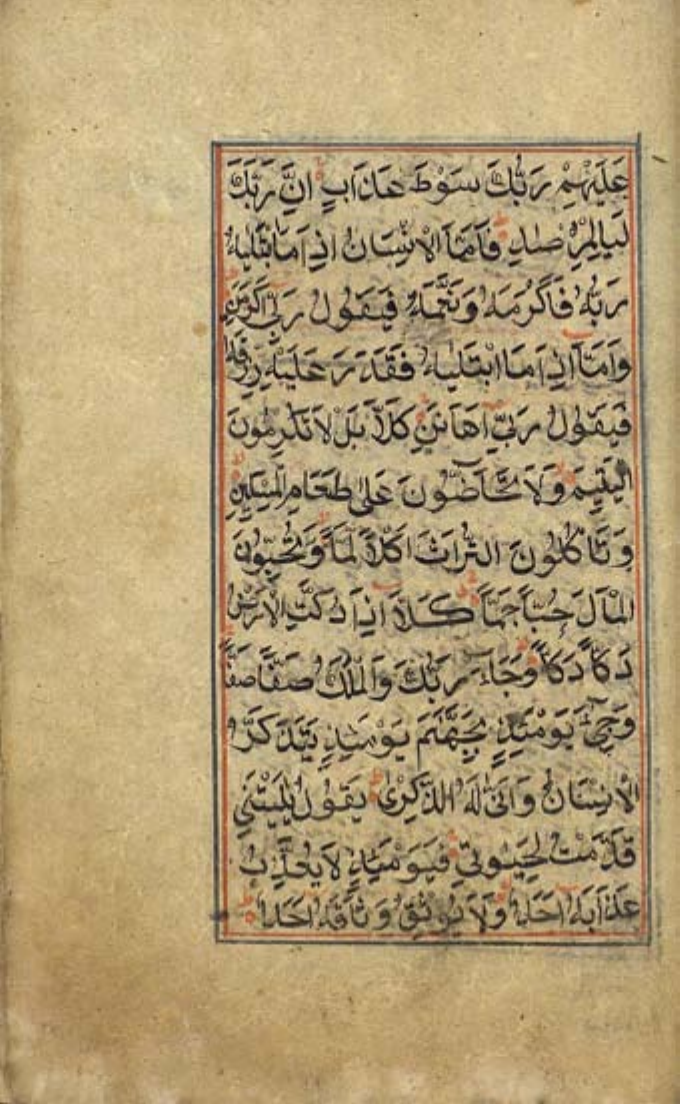 عَلَيْهِمْ رَبُّكَ سَوْطَ عَذَابٍ اِنَّ رَبَّكَ
لَبِالْمِرْصَادِ فَاَمَّا الْاِنْسَانُ اِذَا مَا ابْتَلٰيهُ
رَبُّهُ فَاَكْرَمَهُ وَنَعَّمَهُ فَيَقُولُ رَبّٖى اَكْرَمَنِ
وَاَمَّا اِذَا مَا ابْتَلٰيهُ فَقَدَرَ عَلَيْهِ رِزْقَهُ
فَيَقُولُ رَبّٖى اَهَانَنِ كَلَّا بَلْ لَا تُكْرِمُونَ
الْيَتِيمَ وَلَا تَحَاضُّونَ عَلٰى طَعَامِ الْمِسْكِينِ
وَتَأْكُلُونَ التُّرَاثَ اَكْلًا لَمًّا وَتُحِبُّونَ
الْمَالَ حُبًّا جَمًّا كَلَّا اِذَا دُكَّتِ الْاَرْضُ
دَكًّا دَكًّا وَجَاءَ رَبُّكَ وَالْمَلَكُ صَفًّا صَفًّا
وَجِىءَ يَوْمَئِذٍ بِجَهَنَّمَ يَوْمَئِذٍ يَتَذَكَّرُ
الْاِنْسَانُ وَاَنّٰى لَهُ الذِّكْرٰى يَقُولُ يٰلَيْتَنِى
قَدَّمْتُ لِحَيٰوتِى فَيَوْمَئِذٍ لَا يُعَذِّبُ
عَذَابَهُ اَحَدٌ وَلَا يُوثِقُ وَثَاقَهُ اَحَدٌ